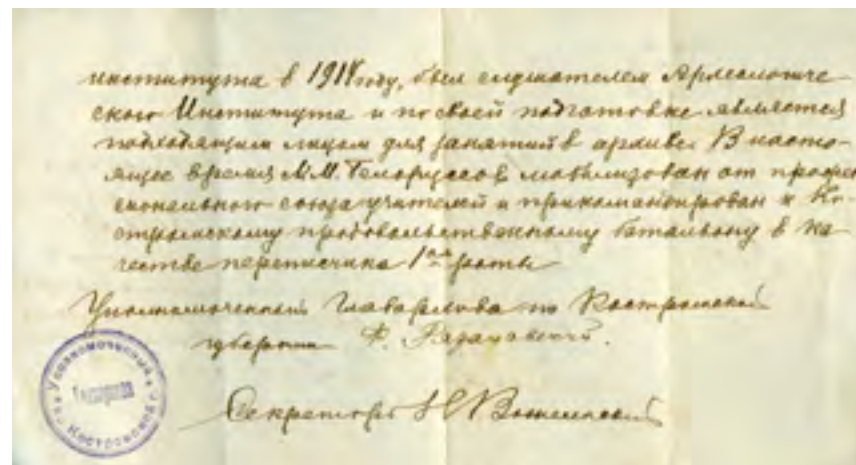 института в 1918 году, был слушателем Археологиче-
ского Института и по своей подготовке является
подходящим лицом для занятий в архиве. В насто-
ящее время М.М. Белоруссов мобилизован от профес
сионального союза учителей и прикомандирован к Ко-
стромскому продовольственному батальону в ка-
честве переписчика 1ой роты
Уполномоченный Главархива по Костромской
губернии
Секретарь
Уполномоченный
Главархива
по Костромской г.